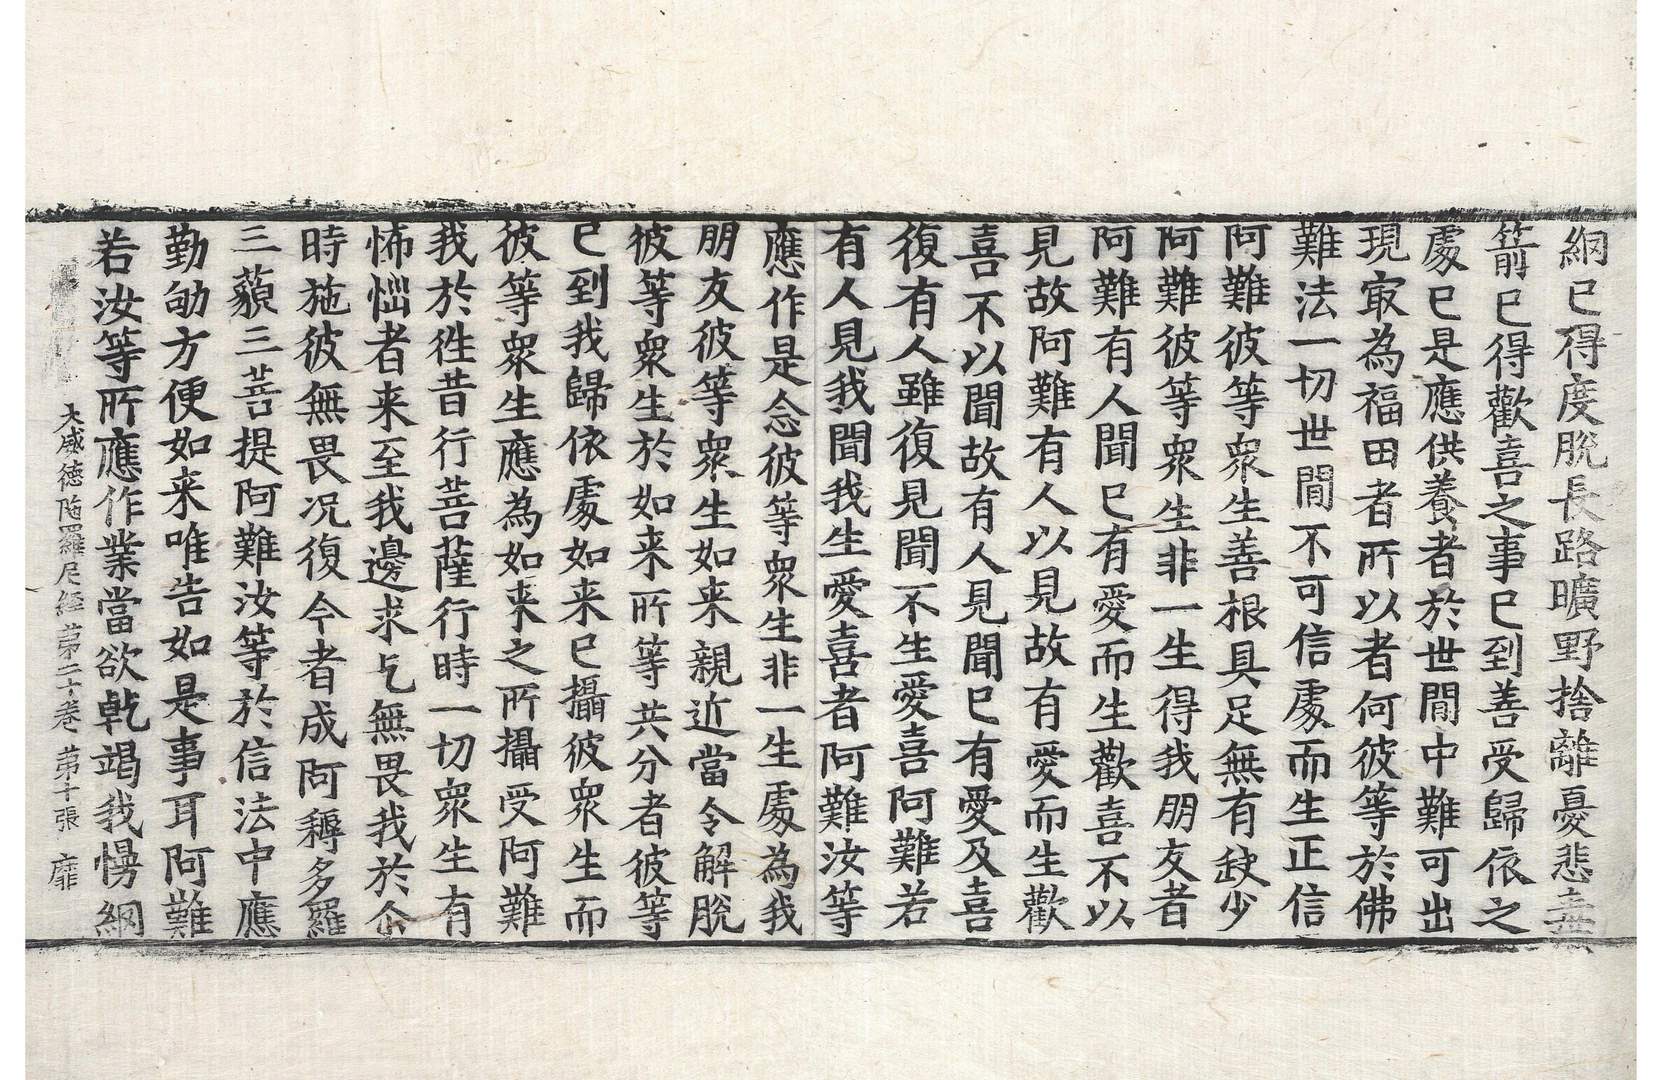 網已得度脫長路曠野捨離憂悲
箭已得歡喜之事已到善受歸依之
處已是應供養者於世間中難可出
現㝡為福田者所以者何彼等於佛
難法一切世間不可信處而生正信
阿難彼等衆生善根具足無有缺少
阿難彼等衆生非一生得我朋友者
阿難有人聞已有愛而生歡喜不以
見故阿難有人以見故有愛而生歡
喜不以聞故有人見聞已有愛及喜
復有人雖復見聞不生愛喜阿難若
有人見我聞我生愛喜者阿難汝等
應作是念彼等衆生非一生處為我
朋友彼等衆生如来親近當令解脫
彼等衆生於如来所等共分者彼等
已到我歸依處如来已攝彼衆生而
彼等衆生應為如来之所攝受阿難
我於徃昔行菩薩行時一切衆生有
怖㤼者来至我邊求乞無畏我於尒
時施彼無畏况復今者成阿耨多羅
三藐三菩提阿難汝等於信法中應
勤劬方便如来唯告如是事耳阿難
若汝等所應作業當欲乾竭我慢網
大威徳陁羅尼経第二十卷 第十張 靡